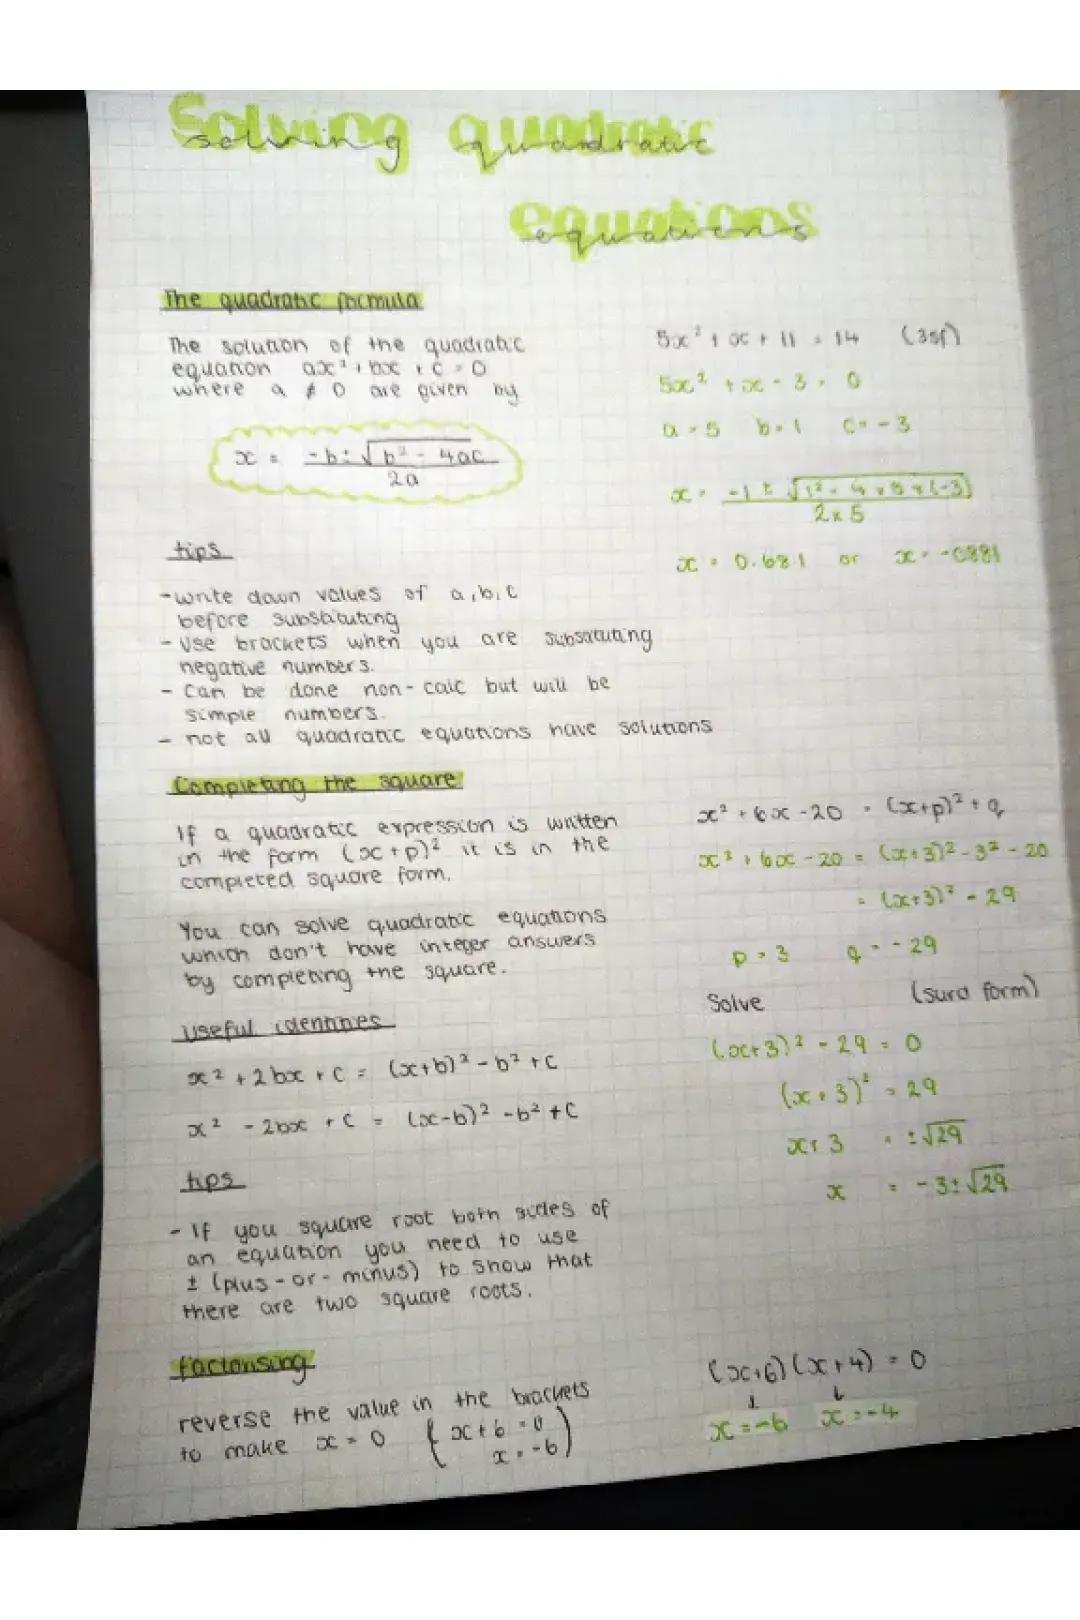 Solving quadratic
equations
The quadratic formula
The solution of the quadratic
equation ax² + bx + c = 0
where a ≠ 0 are given by
x = -b ± √b² - 4ac
2a
5x² + x + 11 = 14 (3sf)
5x² + x - 3 = 0
a = 5 b = 1 c = -3
x = -1 ± √1² - 4 × 5 × (-3)
2 × 5
x = 0.681 or x = -0881
tips
- write down values of a, b, c
before substituting
- Use brackets when you are substituting
negative numbers.
- Can be done non-calc but will be
simple numbers.
- not all quadratic equations have solutions
Completing the square
If a quadratic expression is written
in the form (x+p)² it is in the
completed square form.
You can solve quadratic equations
which don't have integer answers
by completing the square.
x² + 6x - 20 = (x+p)² + q
x² + 6x - 20 = (x+3)² - 3² - 20
= (x+3)² - 29
p = 3 q = -29
useful identities
x² + 2bx + c = (x+b)² - b² + c
x² - 2bx + c = (x-b)² - b² + c
Solve (surd form)
(x+3)² - 29 = 0
(x+3)² = 29
x+3 = ±√29
x = -3±√29
tips
- If you square root both sides of
an equation you need to use
± (plus-or-minus) to show that
there are two square roots.
factorising
reverse the value in the brackets
to make x = 0 (x+6=0
x=-6)
(x+6)(x+4) = 0
↓ ↓
x=-6 x=-4